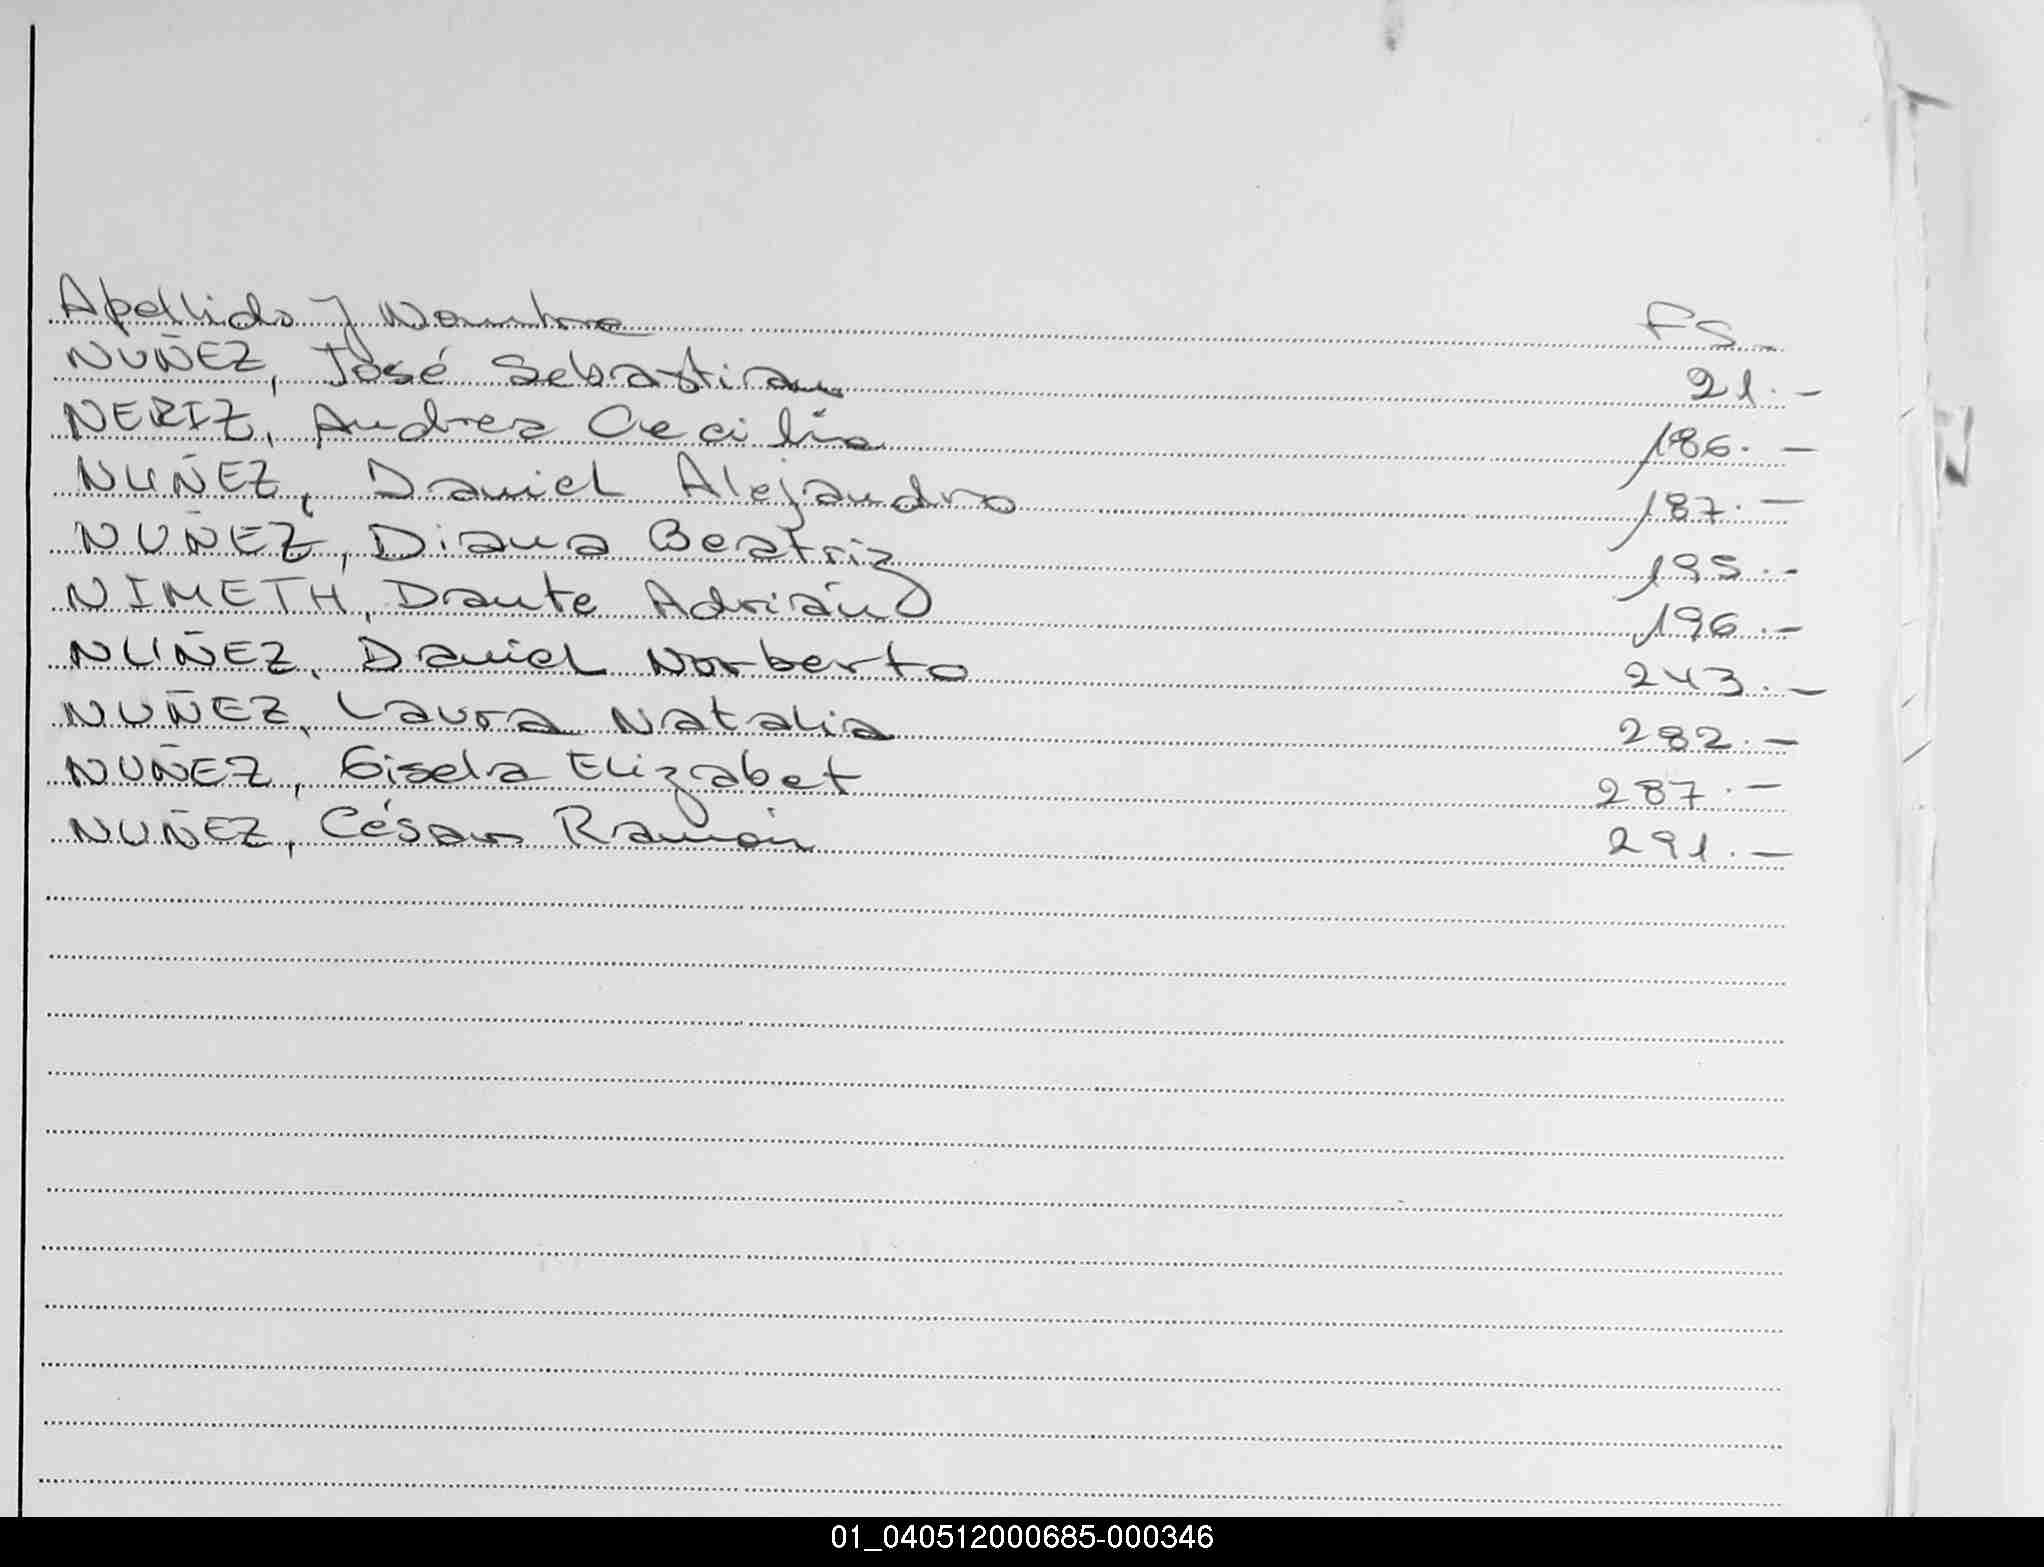 Apellido y Nombre FS.
NUÑEZ, José Sebastian 21.-
NERIZ, Andrea Cecilia 186.-
NUÑEZ, Daniel Alejandro 187.-
NUÑEZ, Diana Beatriz 195.-
NIMETH, Dante Adrián 196.-
NUÑEZ, Daniel Norberto 243.-
NUÑEZ, Laura Natalia 282.-
NUÑEZ, Gisela Elizabet 287.-
NUÑEZ, César Ramón 291.-
N
01_040512000685-000346